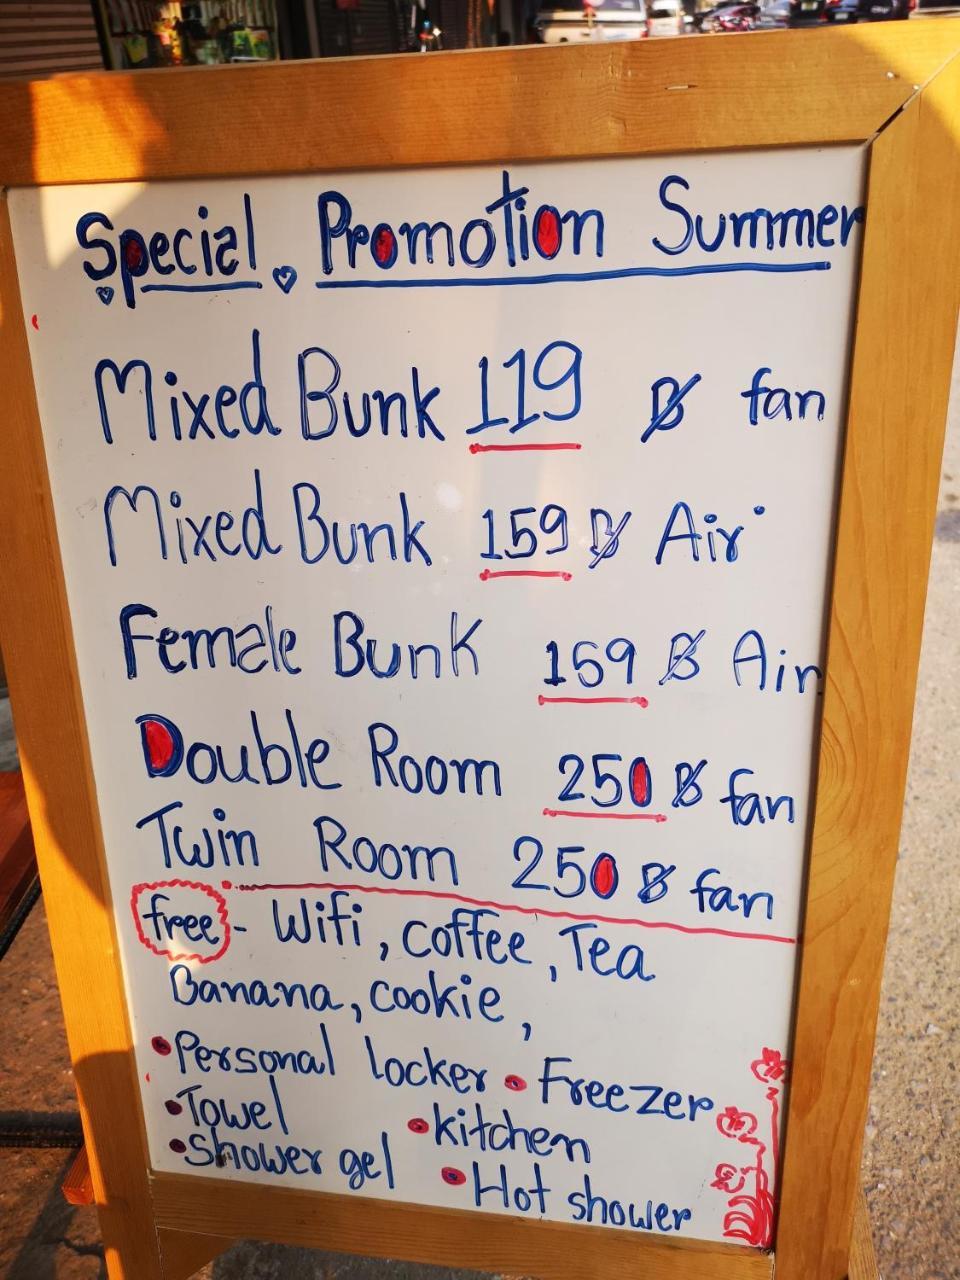 Special Promotion Summer
Mixed Bunk 119 ฿ fan
Mixed Bunk 159 ฿ Air
Female Bunk 159 ฿ Air
Double Room 250 ฿ fan
Twin Room 250 ฿ fan
free - Wifi, coffee, Tea
Banana, cookie,
• Personal locker • Freezer
• Towel • kitchen
• Shower gel • Hot shower